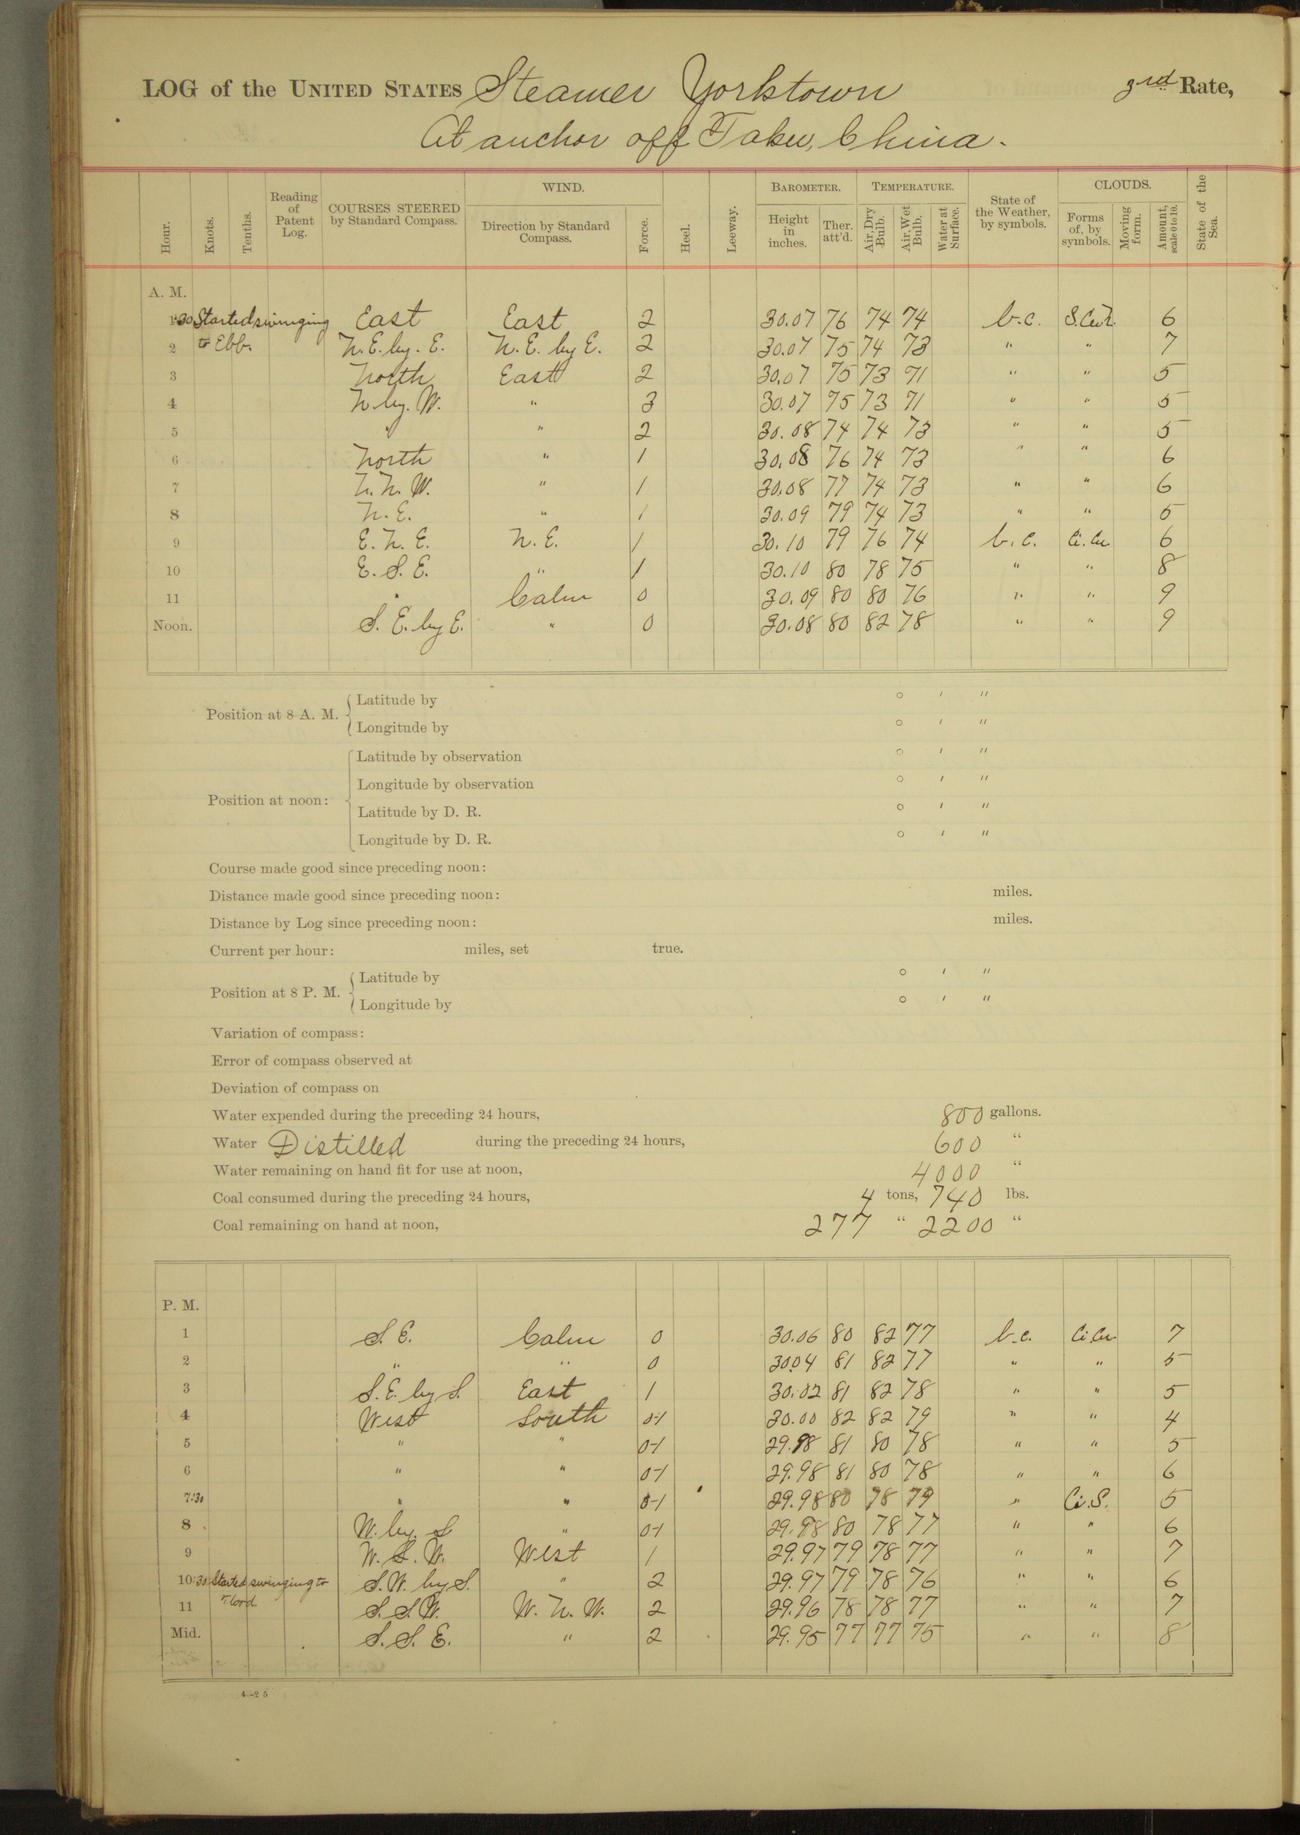 LOG of the UNITED STATES Steamer Yorktown 3rd Rate,
At anchor off Taku, China.
Hour. Knots. Tenths. Reading of Patent Log. COURSES STEERED by Standard Compass. WIND. Direction by Standard Compass. Force. Heel. Leeway. BAROMETER. Height in inches. Ther. att'd. TEMPERATURE. Air, Dry Bulb. Air, Wet Bulb. Water at Surface. State of the Weather, by symbols. CLOUDS. Forms of, by symbols. Moving form. Amount, scale 0 to 10. State of the Sea.
A. M.
1:30 Started swinging East East 2 30.07 76 74 74 b.c. 6
2 to Ebb. N.E. by. E. N.E. by E. 2 30.07 75 74 73 " " 7
3 North East 2 30.07 75 73 71 " " 5
4 N by. W. " 3 30.07 75 73 71 " " 5
5 " " 2 30.08 74 74 73 " " 5
6 North " 1 30.08 76 74 73 " " 6
7 N.N.W. " 1 30.08 77 74 73 " " 6
8 N.E. " 1 30.09 79 74 73 " " 5
9 E.N.E. N.E. 1 30.10 79 76 74 b.c. Ci.Cu 6
10 E.S.E. " 1 30.10 80 78 75 " " 8
11 " Calm 0 30.09 80 80 76 " " 9
Noon. S.E. by E. " 0 30.08 80 82 78 " " 9
Position at 8 A. M. Latitude by ° ′ ″
Longitude by ° ′ ″
Position at noon: Latitude by observation ° ′ ″
Longitude by observation ° ′ ″
Latitude by D. R. ° ′ ″
Longitude by D. R. ° ′ ″
Course made good since preceding noon:
Distance made good since preceding noon: miles.
Distance by Log since preceding noon: miles.
Current per hour: miles, set true.
Position at 8 P. M. Latitude by ° ′ ″
Longitude by ° ′ ″
Variation of compass:
Error of compass observed at
Deviation of compass on
Water expended during the preceding 24 hours, 800 gallons.
Water Distilled during the preceding 24 hours, 600 "
Water remaining on hand fit for use at noon, 4000 "
Coal consumed during the preceding 24 hours, 4 tons, 740 lbs.
Coal remaining on hand at noon, 277 " 2200 "
P. M.
1 S.E. Calm 0 30.06 80 82 77 b.c. Ci.Cu 7
2 " " 0 30.04 81 82 77 " " 5
3 S.E. by S. East 1 30.02 81 82 78 " " 5
4 West South 0-1 30.00 82 82 79 " " 4
5 " " 0-1 29.98 81 80 78 " " 5
6 " " 0-1 29.98 81 80 78 " " 6
7:31 " " 0-1 29.98 80 78 79 " Ci.S. 5
8 W. by. S " 0-1 29.98 80 78 77 " " 6
9 W.S.W. West 1 29.97 79 78 77 " " 7
10:30 Started swinging to S.W. by S. " 2 29.97 79 78 76 " " 6
11 Flood S.S.W. W.N.W. 2 29.96 78 78 77 " " 7
Mid. S.S.E. " 2 29.95 77 77 75 " " 8
4—25